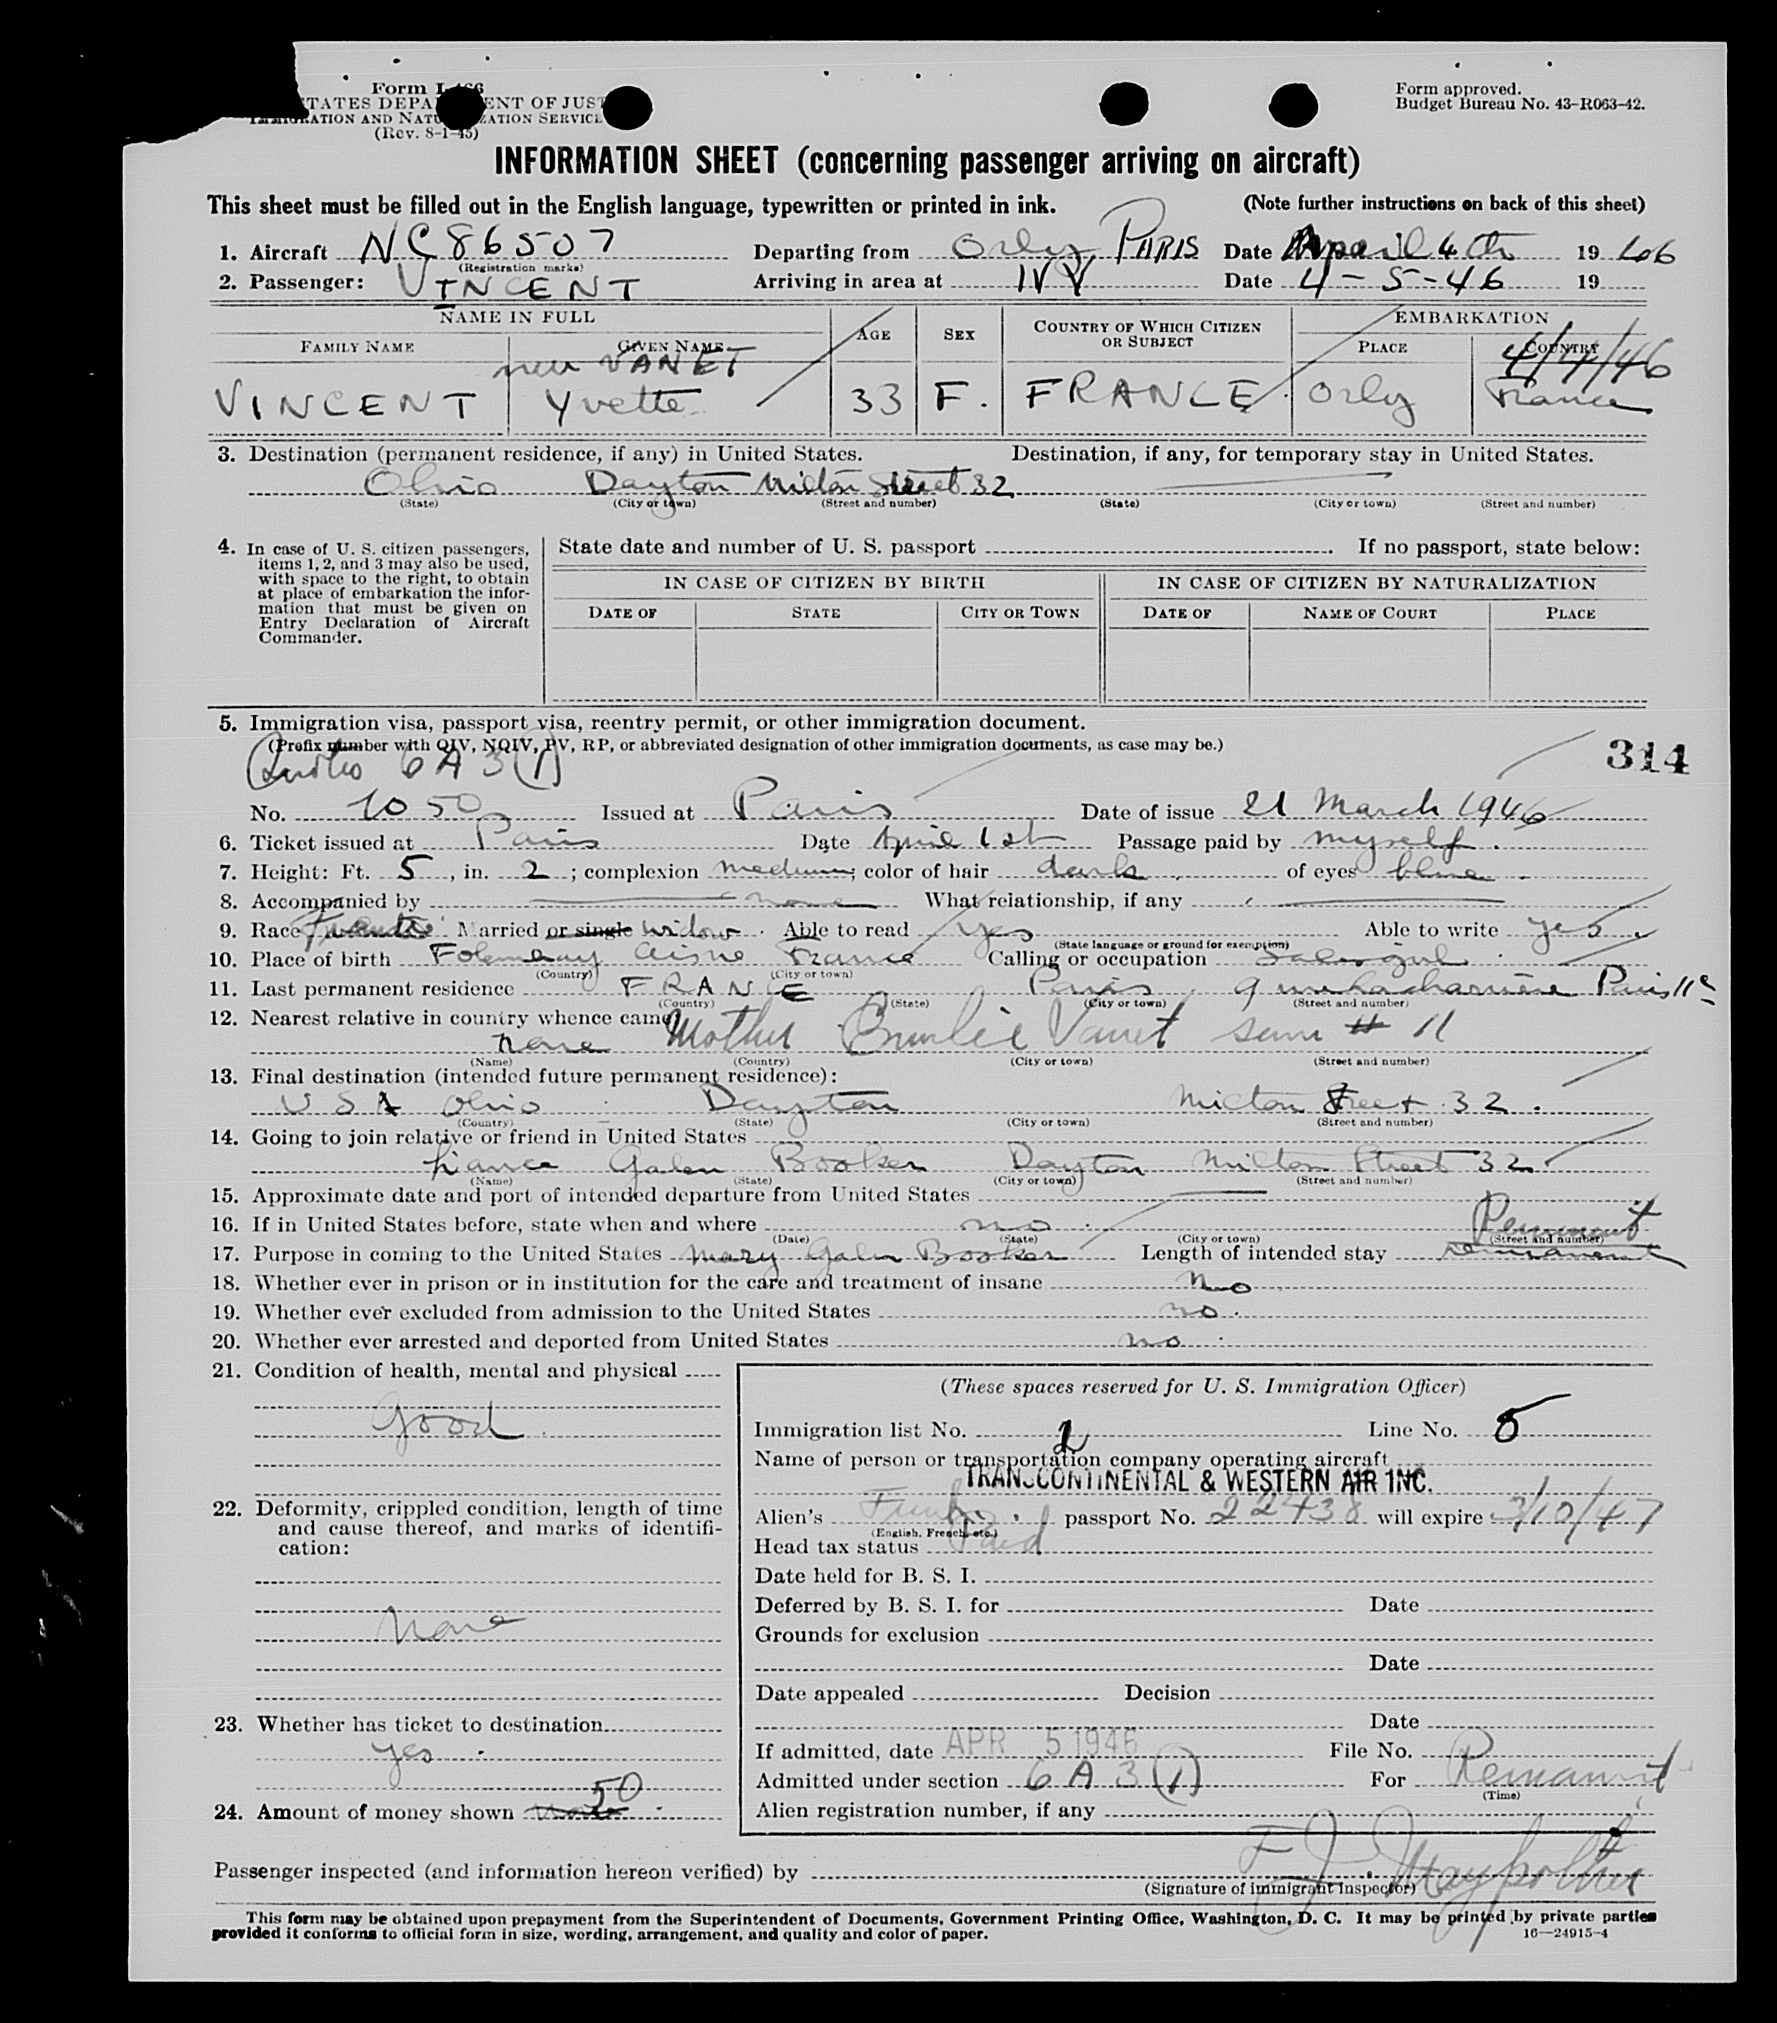 Form I-466
STATES DEPARTMENT OF JUST
IMMIGRATION AND NATURALIZATION SERVICE
(Rev. 8-1-45)
Form approved.
Budget Bureau No. 43-R063-42.
INFORMATION SHEET (concerning passenger arriving on aircraft)
This sheet must be filled out in the English language, typewritten or printed in ink. (Note further instructions on back of this sheet)
1. Aircraft NC86507 Departing from Orly PARIS Date April 4th 19 46
(Registration marks)
2. Passenger: VINCENT Arriving in area at Date 4-5-46 19
NAME IN FULL AGE SEX COUNTRY OF WHICH CITIZEN OR SUBJECT EMBARKATION
FAMILY NAME GIVEN NAME PLACE COUNTRY
nee VANET 4/4/46
VINCENT Yvette 33 F. FRANCE Orly France
3. Destination (permanent residence, if any) in United States. Destination, if any, for temporary stay in United States.
Ohio Dayton Milton Street 32
(State) (City or town) (Street and number) (State) (City or town) (Street and number)
4. In case of U. S. citizen passengers, items 1, 2, and 3 may also be used, with space to the right, to obtain at place of embarkation the information that must be given on Entry Declaration of Aircraft Commander.
State date and number of U. S. passport . If no passport, state below:
IN CASE OF CITIZEN BY BIRTH IN CASE OF CITIZEN BY NATURALIZATION
DATE OF STATE CITY OR TOWN DATE OF NAME OF COURT PLACE
5. Immigration visa, passport visa, reentry permit, or other immigration document.
(Prefix number with QIV, NQIV, PV, RP, or abbreviated designation of other immigration documents, as case may be.)
6A3(1) 314
No. 1050 Issued at Paris Date of issue 21 March 1946
6. Ticket issued at Paris Date April 1st Passage paid by myself.
7. Height: Ft. 5, in. 2; complexion medium; color of hair dark of eyes blue
8. Accompanied by none What relationship, if any
9. Race Married or single widow. Able to read yes Able to write yes
(State language or ground for exemption)
10. Place of birth Folembray Aisne France Calling or occupation Salesgirl
(Country) (City or town)
11. Last permanent residence FRANCE Paris 9 Paris 11e
(Country) (State) (City or town) (Street and number)
12. Nearest relative in country whence came
none Mother Vanet same # 11
(Name) (Country) (City or town) (Street and number)
13. Final destination (intended future permanent residence):
USA Ohio Dayton Milton Street 32.
(Country) (State) (City or town) (Street and number)
14. Going to join relative or friend in United States
fiance Galen Booker Dayton Milton Street 32
(Name) (State) (City or town) (Street and number)
15. Approximate date and port of intended departure from United States
16. If in United States before, state when and where no Permanent
(Date) (State) (City or town) (Street and number)
17. Purpose in coming to the United States marry Galen Booker Length of intended stay permanent
18. Whether ever in prison or in institution for the care and treatment of insane no
19. Whether ever excluded from admission to the United States no.
20. Whether ever arrested and deported from United States no.
21. Condition of health, mental and physical
good
22. Deformity, crippled condition, length of time and cause thereof, and marks of identification:
None
23. Whether has ticket to destination
yes.
24. Amount of money shown none 50
(These spaces reserved for U. S. Immigration Officer)
Immigration list No. 2 Line No. 5
Name of person or transportation company operating aircraft
TRANSCONTINENTAL & WESTERN AIR INC.
Alien's French passport No. 22438 will expire 3/10/47
(English, French, etc.)
Head tax status Paid
Date held for B. S. I.
Deferred by B. S. I. for Date
Grounds for exclusion
Date
Date appealed Decision
Date
If admitted, date APR 5 1946 File No.
Admitted under section 6A3(1) For Permanent
(Time)
Alien registration number, if any
Passenger inspected (and information hereon verified) by
(Signature of immigrant inspector)
This form may be obtained upon prepayment from the Superintendent of Documents, Government Printing Office, Washington, D. C. It may be printed by private parties
provided it conforms to official form in size, wording, arrangement, and quality and color of paper. 16—24915-4